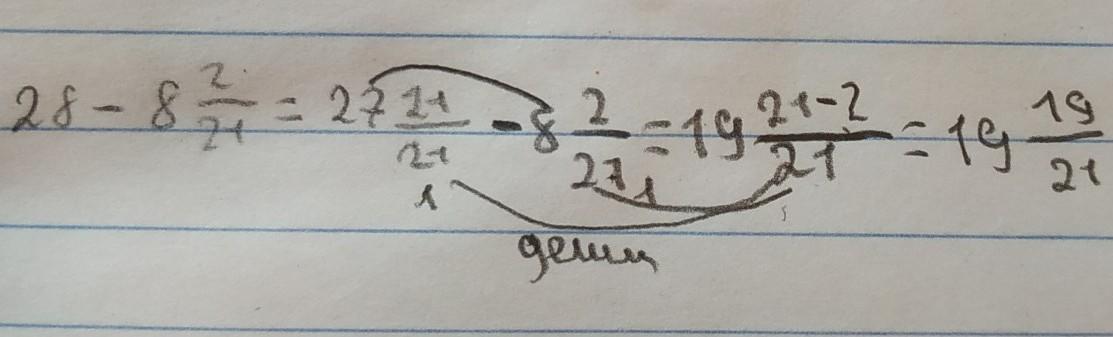 28 - 8 2/21 = 27 21/21 - 8 2/21 = 19 21-2/21 = 19 19/21
1 1
делим